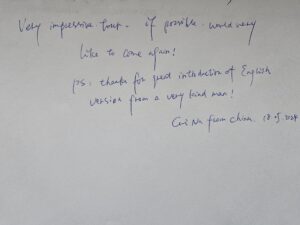 Very impressive tour. if possible. would very
like to come again!
ps. thanks for good introduction of English
version from a very kind man!
Cui Na from China. 18.05.2024